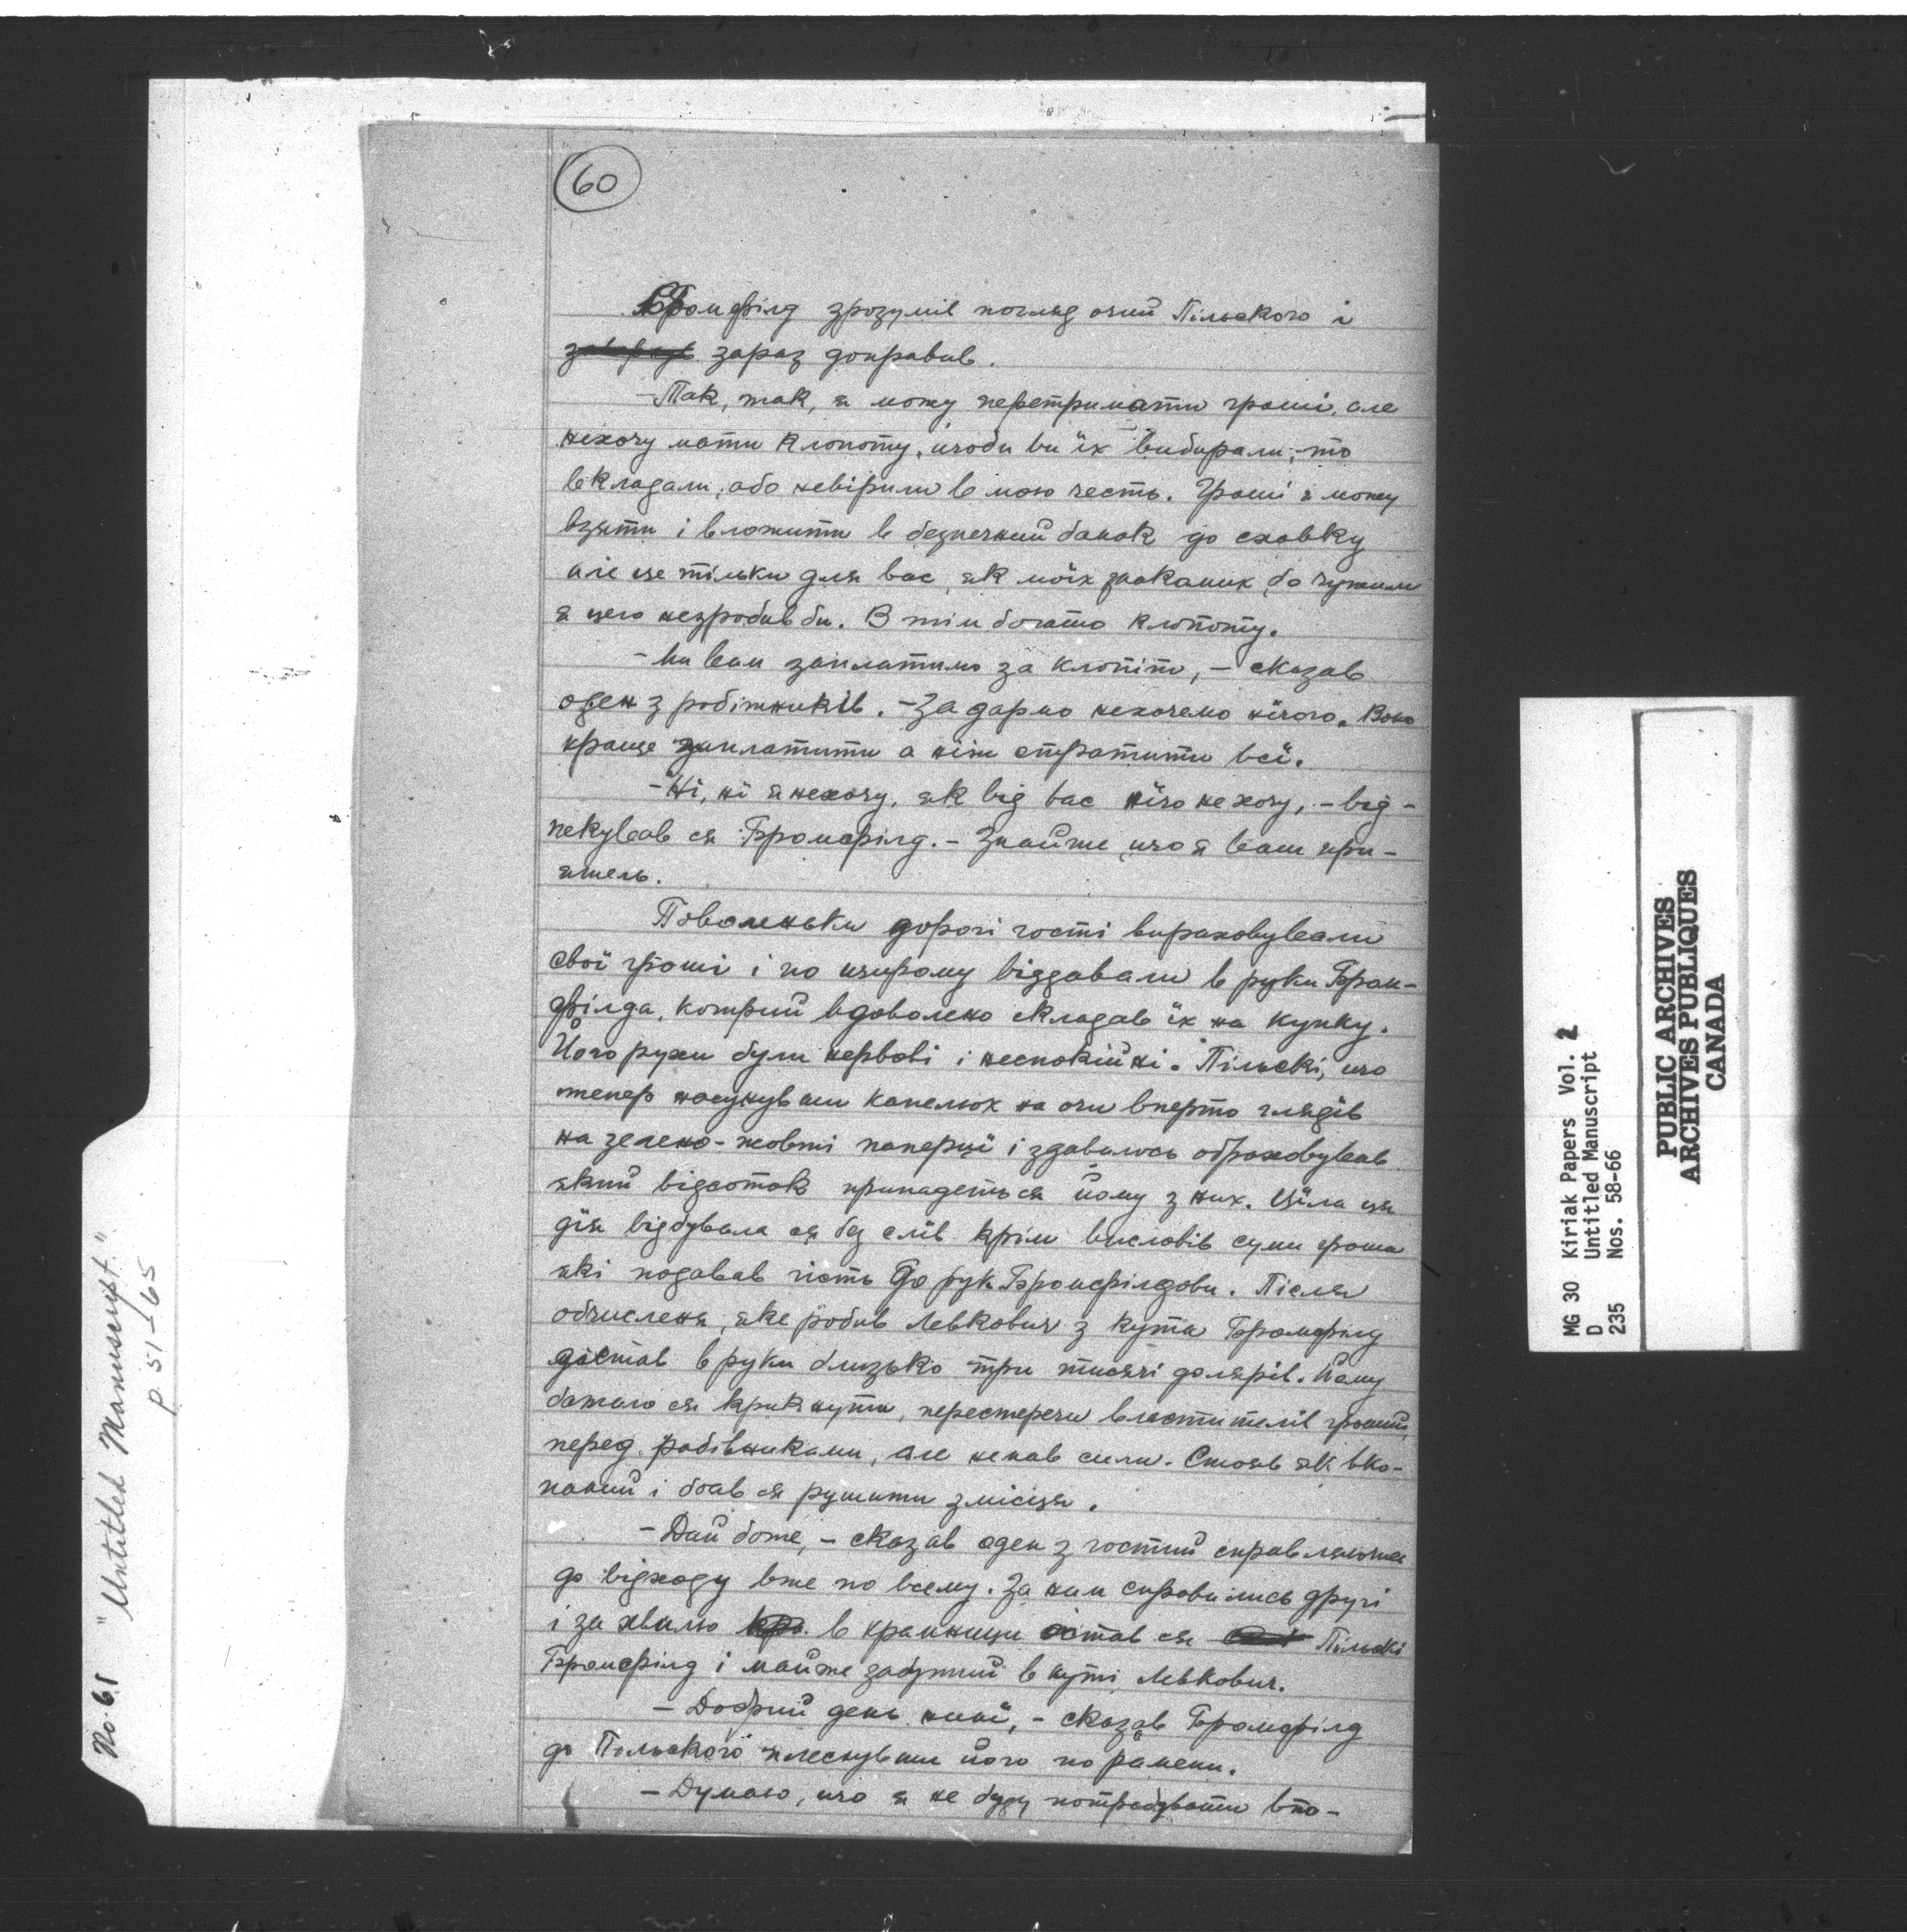 60
Бромфілд зрозумів погляд очий Пільского і
зараз доправив.
- Так, так, я можу перетримати гроші, але
нехочу мати клопоту, щоби ви їх вибирали, то
вкладали, або невірили в мою честь. Гроші я можу
взяти і вложити в безпечний банок до сховку
але це тільки для вас, як моїх знакомих, бо чужим
я цего незробив би. В тім богато клопоту.
- Ми вам заплатимо за клопіт, - сказав
оден з робітників. - За дармо нехочемо нічого. Воно
краще заплатити а ніж стратити всї.
- Нї, нї я нехочу, як від вас нїчо не хочу, - від-
пекував ся Бромфілд. - Знайте, що я ваш при-
ятель.
Поволеньки дорогі гості вираховували
свої гроші і по щирому віддавали в руки Бром-
філда, котрий вдоволено складав їх на купку.
Його рухи були нервові і неспокійні. Пільскі, що
тепер насунувши капелюх на очи вперто глядїв
на зелено-жовті паперцї і здавалось обраховував
який відсоток припадеть ся йому з них. Цїла ця
дїя відбувала ся без слів крім висловів суми гроши
які подавав гість до рук Бромфілдови. Після
обчисленя, яке робив Левкович з кута Бромфілд
дістав в руки близько три тисячі долярів. Йому
бажало ся крикнути, перестеречи властителїв гроший,
перед рабівниками, але немав сили. Стояв як вко-
паний і бояв ся рушити змісця.
- Дай боже, - сказав оден з гостий справляючись
до відходу вже по всему. За ним справились другі
і за хвилю в крамници остав ся Пільскі
Бромфілд і майже забутий в кутї Левкович.
- Добрий день нинї, - сказав Бромфілд
до Пільского плеснувши його по рамени.
- Думаю, що я не буду потребувати вто-
No. 61 "Untitled Manuscript."
p 51-65
MG 30 Kiriak Papers Vol. 2
D Untitled Manuscript
235 Nos. 58-66
PUBLIC ARCHIVES
ARCHIVES PUBLIQUES
CANADA